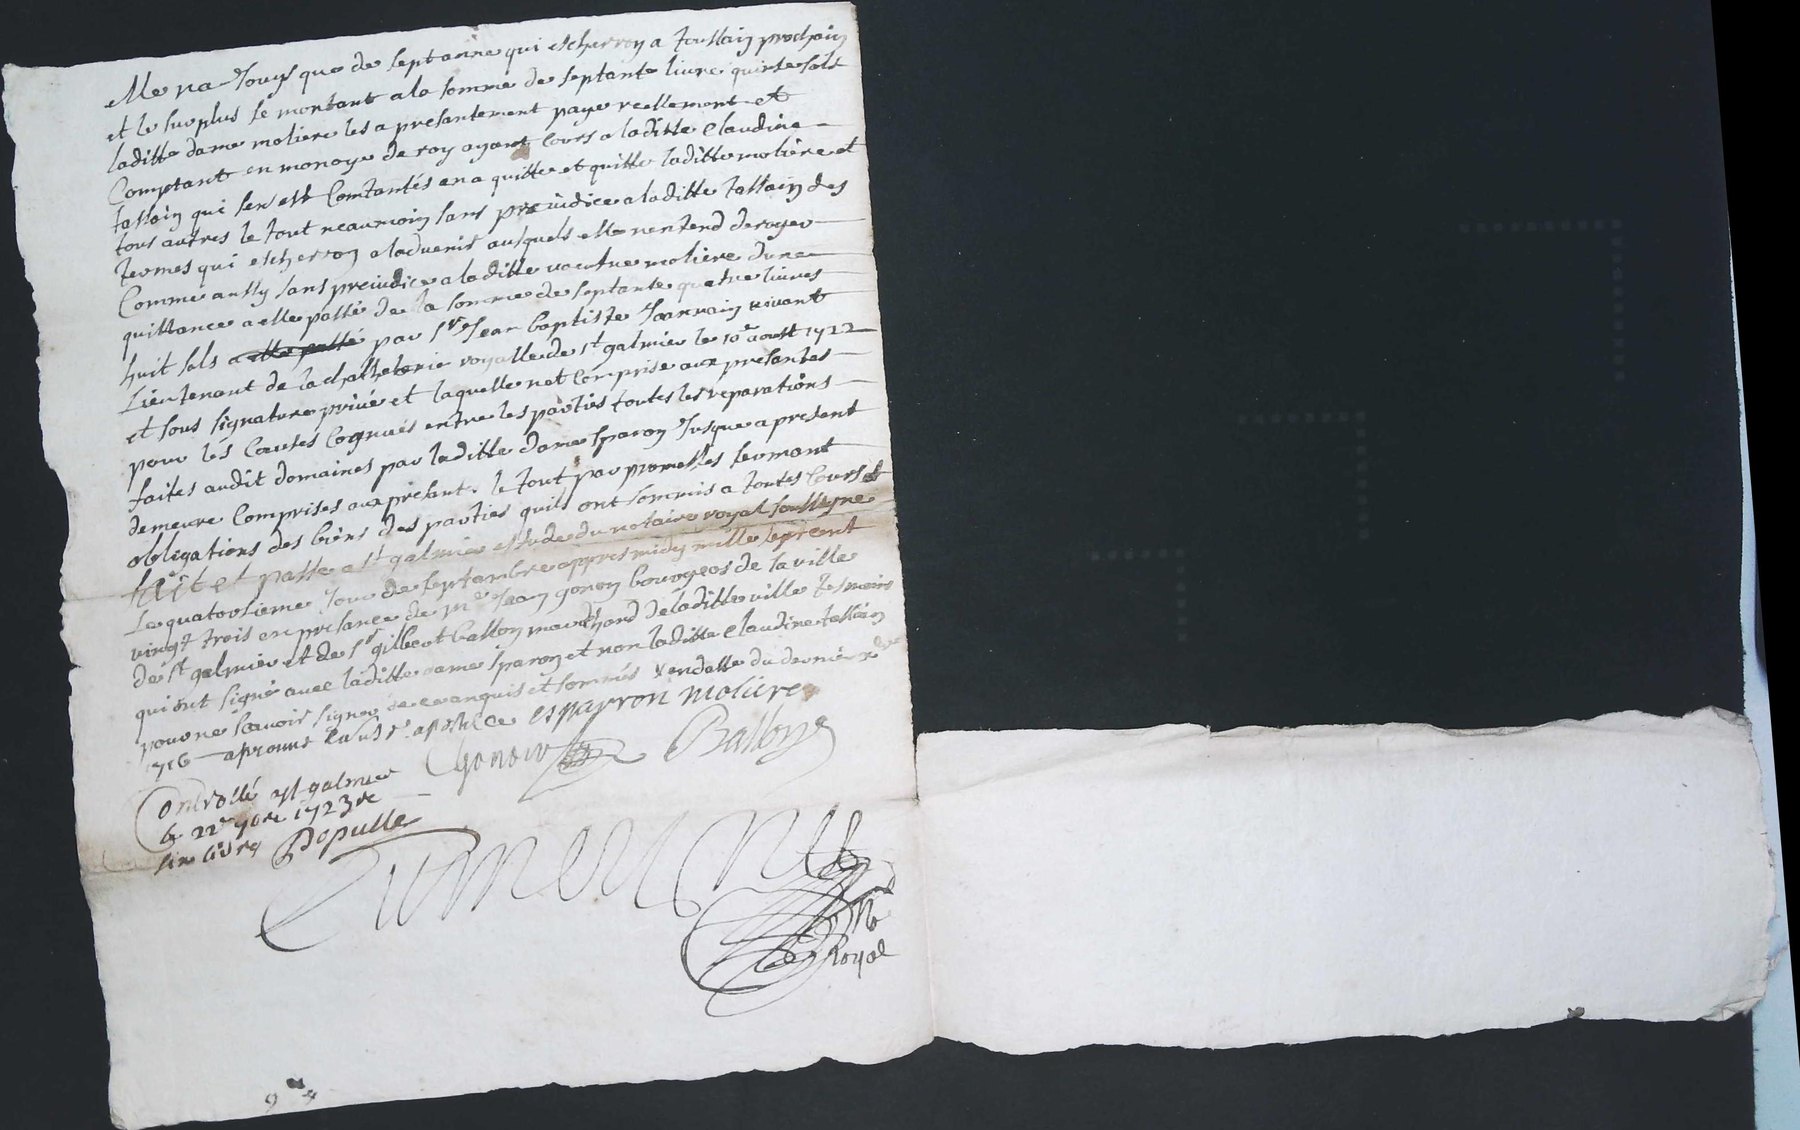 elle na Jouys que de sept anne qui escherron a toussain prochain
et le surplus se montant a la somme de septante livre quinse sols
laditte dame moliere les a presantement paye reellement et
Comptant en monoye de roy ayant Cours a laditte Claudine
tassain qui sen est Contantés en a quitte et quitte laditte moliere et
tous autres le tout neaumoin sans preiudice a laditte tassain des
termes qui escherron a ladvenir ausquels elle nentend deroger
Comme aussy sans preiudice a laditte veufve moliere dune
quittance a elle passé de la somme de septante quatre livres
huit sols a elle passé par Sr Jean baptiste Jean vivant
Lieutenant de la chastelenie royalle de st galmier le 10e aoust 1722
et sous signature privé et laquelle net Comprise aux presantes
pour les Causes Cognues entre les parties toutes les reparations
faites audit domaines par laditte dame sparon Jusque a present
demeure Comprises aux présant. le tout par promesses sermant
obligations des biens des parties quils ont sommis a toutes Cours et
fait et passe a st galmier estude du notaire royal soussigne
Le quatorsieme Jour de septambre appres midy mille sept cent
vingt trois en presance de Mr Jean gonon bourgeos de la ville
de st galmier et de Sr gilbert ballon marchand de laditte ville tesmoins
qui ont signé avec laditte dame sparon et non laditte Claudine tassain
pour ne scavoir signer de ce enquis et sommés vendatte du dernier
1716 aprouvé
esparron moliere
Gonon Ballon
Controllé a st galmier
le 22e 9bre 1723 Re
six livres
Populle
Nre
Royal